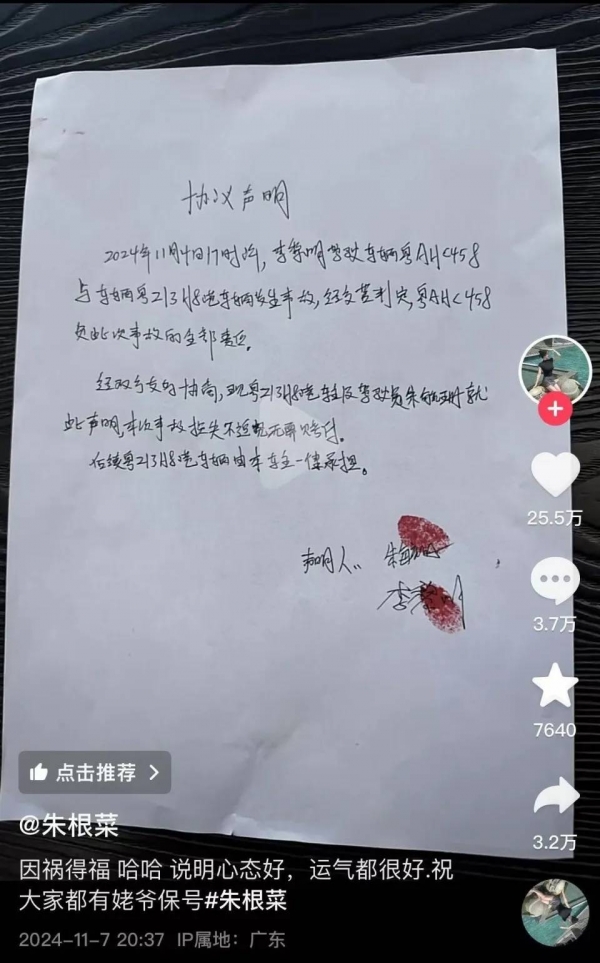 协议声明
2024年11月4日17时许，李 明驾驶车辆粤AH 458
与车辆粤Z13H8港车辆发生事故，经交警判定，粤AH 458
负此次事故的全部责任。
经双方友的协商，现粤Z13H8港车主及驾驶员朱 就
此声明，本次事故损失不追究无需赔付。
后续粤Z13H8港车辆由本车主一律承担。
声明人：朱
李 明
25.5万
3.7万
7640
3.2万
点击推荐 >
@朱根菜
因祸得福 哈哈 说明心态好，运气都很好.祝
大家都有姥爷保号#朱根菜
2024-11-7 20:37 IP属地：广东